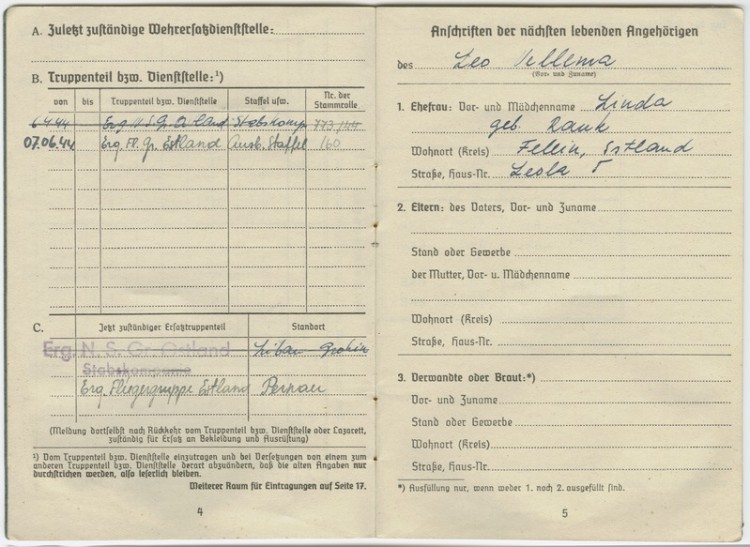 A. Zuletzt zuständige Wehrersatzdienststelle:
B. Truppenteil bzw. Dienststelle:¹)
von bis Truppenteil bzw. Dienststelle Staffel usw. Nr. der Stammrolle
6.4.44 Erg. N.S.Gr. Ostland Stabskomp.
07.06.44 Erg. Fl. Gr. Estland Ausb. Staffel 160
C. Jetzt zuständiger Ersatztruppenteil Standort
Erg. N. S. Gr. Ostland Libau Grobin
Stabskompanie
Erg. Fliegergruppe Estland Pernau
(Meldung dortselbst nach Rückkehr vom Truppenteil bzw. Dienststelle oder Lazarett,
zuständig für Ersatz an Bekleidung und Ausrüstung)
¹) Vom Truppenteil bzw. Dienststelle einzutragen und bei Versetzungen von einem zum
anderen Truppenteil bzw. Dienststelle derart abzuändern, daß die alten Angaben nur
durchstrichen werden, also leserlich bleiben.
Weiterer Raum für Eintragungen auf Seite 17.
4
Anschriften der nächsten lebenden Angehörigen
des Leo
(Vor- und Zuname)
1. Ehefrau: Vor- und Mädchenname Linda
geb. Rank
Wohnort (Kreis) Fellin, Estland
Straße, Haus-Nr. Leola 5
2. Eltern: des Vaters, Vor- und Zuname
Stand oder Gewerbe
der Mutter, Vor- u. Mädchenname
Wohnort (Kreis)
Straße, Haus-Nr.
3. Verwandte oder Braut:*)
Vor- und Zuname
Stand oder Gewerbe
Wohnort (Kreis)
Straße, Haus-Nr.
*) Ausfüllung nur, wenn weder 1. noch 2. ausgefüllt sind.
5